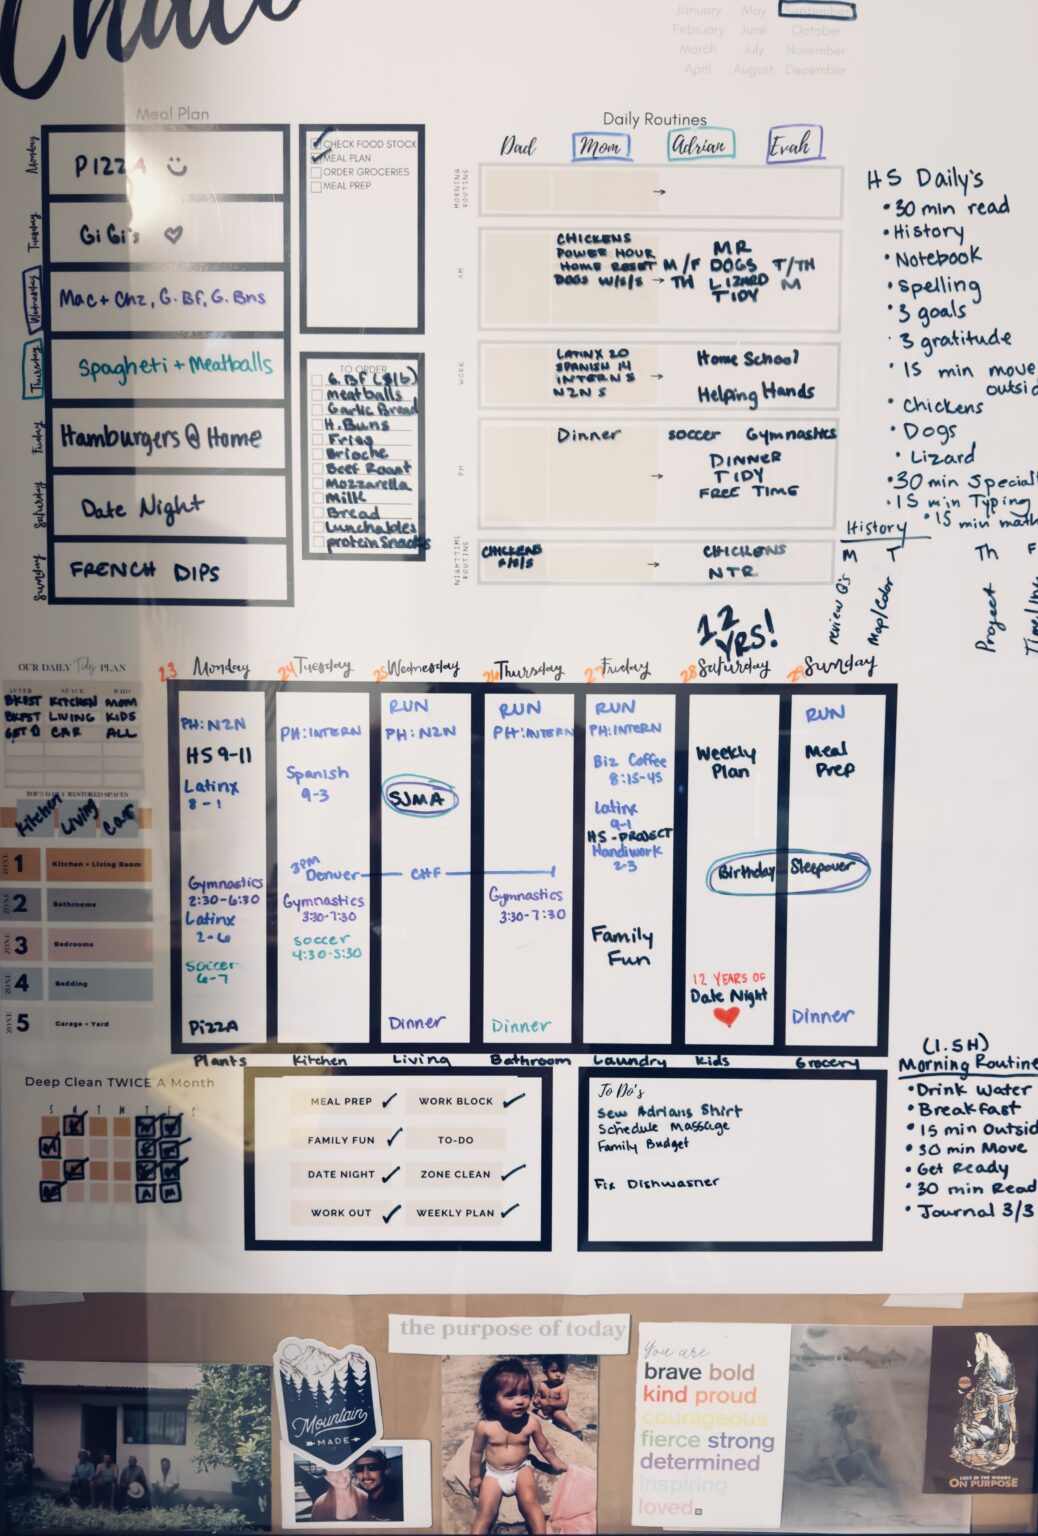 January May September
February June October
March July November
April August December
Meal Plan
Monday
PIZZA
Tuesday
Gi Gi's
Wednesday
Mac + Chz, G. Bf, G. Bns
Thursday
Spagheti + Meatballs
Friday
Hamburgers @ Home
Saturday
Date Night
Sunday
FRENCH DIPS
CHECK FOOD STOCK
MEAL PLAN
ORDER GROCERIES
MEAL PREP
TO ORDER
meatballs
Garlic Bread
H. Buns
Brioche
Beef Roast
Mozzarella
Milk
Bread
Lunchables
protein Snacks
Daily Routines
Dad Mom Adrian Evah
MORNING ROUTINE
AM
CHICKENS
POWER HOUR
HOME RESET
DOGS W/S/S
MR
M/F DOGS T/TH
TH LIZARD M
TIDY
WORK
LATINX 20
SPANISH 14
INTERN 5
N2N 5
Home School
Helping Hands
PM
Dinner
soccer Gymnastics
DINNER
TIDY
FREE TIME
NIGHTTIME ROUTINE
CHICKENS
CHICKENS
NTR
HS Daily's
30 min read
History
Notebook
Spelling
3 goals
3 gratitude
15 min move
Chickens
Dogs
Lizard
15 min Typing
15 min math
History
M T Th F
review Q's
Map/Color
Project
12 YRS!
OUR DAILY Tidy PLAN
AFTER SPACE WHO
BKFST KITCHEN MOM
BKFST LIVING KIDS
CAR ALL
TOP 3 DAILY RESTORED SPACES
Kitchen Living Car
ZONE 1 Kitchen + Living Room
ZONE 2 Bathrooms
ZONE 3 Bedrooms
ZONE 4 Bedding
ZONE 5 Garage + Yard
23 Monday
PH: N2N
HS 9-11
Latinx
8-1
Gymnastics
2:30-6:30
Latinx
2-6
soccer
6-7
PIZZA
Plants
24 Tuesday
PH: INTERN
Spanish
9-3
3PM
Denver
Gymnastics
3:30-7:30
soccer
4:30-5:30
Kitchen
25 Wednesday
RUN
PH: N2N
SJMA
CHF
Dinner
Living
26 Thursday
RUN
PH: INTERN
Gymnastics
3:30-7:30
Dinner
Bathroom
27 Friday
RUN
PH: INTERN
Biz Coffee
8:15-45
Latinx
9-1
HS-PROJECT
Handiwork
2-3
Family
Fun
Laundry
28 Saturday
Weekly
Plan
Birthday Sleepover
12 YEARS OF
Date Night
Kids
29 Sunday
RUN
Meal
Prep
Dinner
Grocery
Deep Clean TWICE A Month
S M T W T F S
MEAL PREP WORK BLOCK
FAMILY FUN TO-DO
DATE NIGHT ZONE CLEAN
WORK OUT WEEKLY PLAN
To Do's
Sew Adrians Shirt
Schedule Massage
Family Budget
Fix Dishwasher
(1.5H)
Morning Routine
Drink Water
Breakfast
15 min Outsid
30 min Move
Get Ready
30 min Read
Journal 3/3
the purpose of today
Mountain
MADE
You are
brave bold
kind proud
courageous
fierce strong
determined
inspiring
loved.
LOST IN THE WOODS
ON PURPOSE